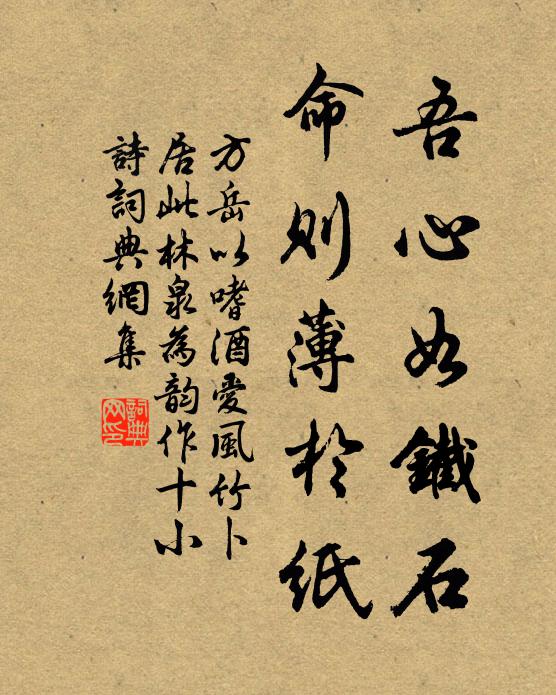 吾心如鐵石
命則薄於紙
方岳以嗜酒愛風竹卜
居此林泉為韵作十小
詩詞典網集
詞典
网印